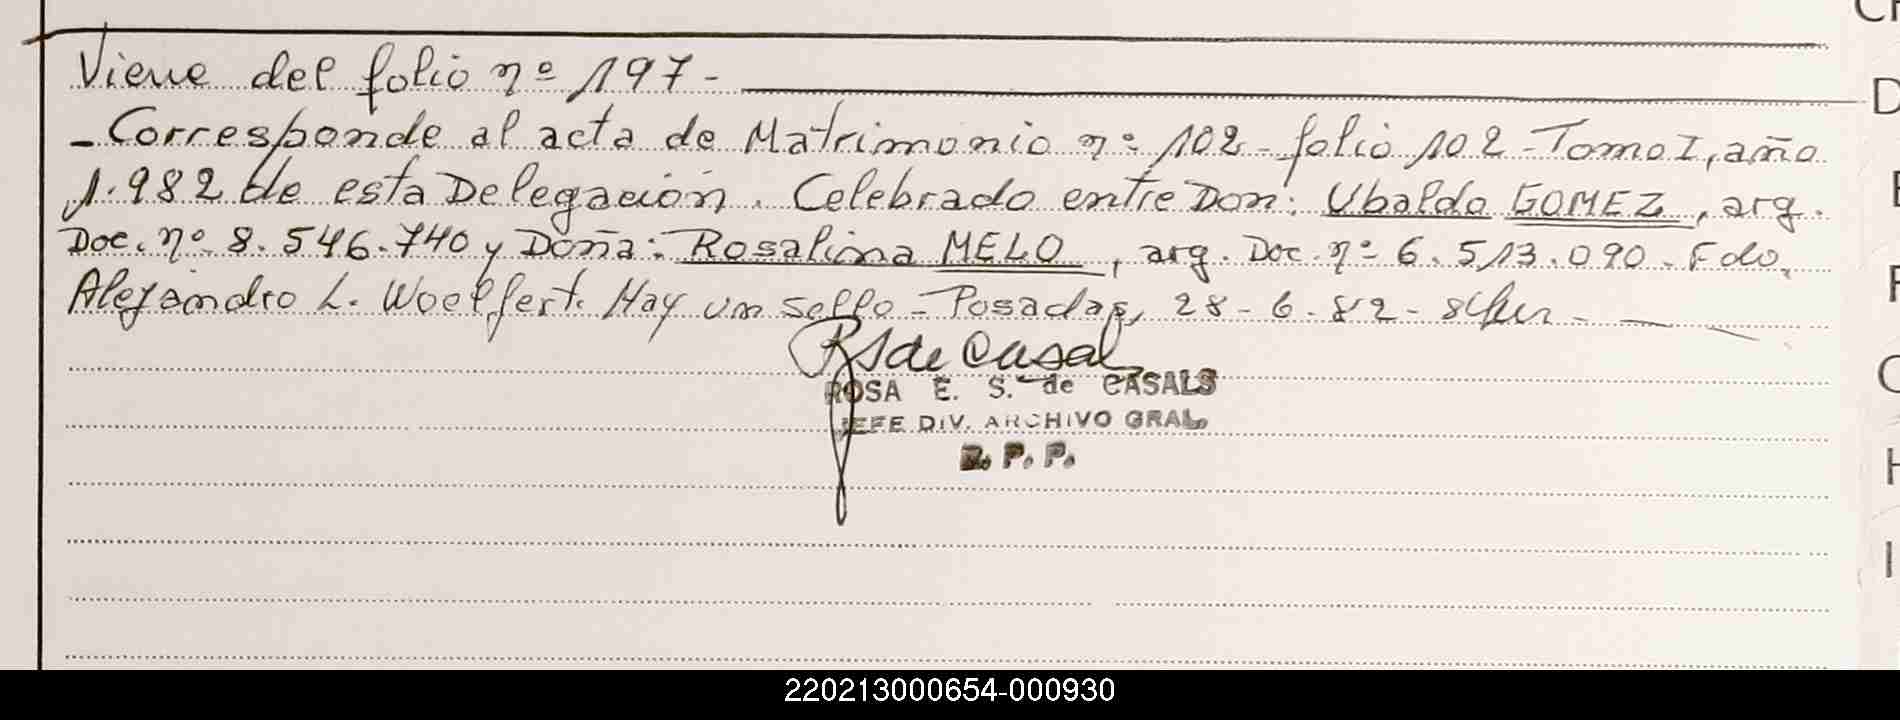 Viene del folio nº 197-
- Corresponde al acta de Matrimonio nº 102 - folio 102 - Tomo I, año
1.982 de esta Delegación. Celebrado entre Don: Ubaldo GOMEZ, arg.
Doc. nº 8.546.740 y Doña: Rosalina MELO, arg. Doc. nº 6.513.090. Fdo.
Alejandro L. Woelfert. Hay un sello - Posadas, 28-6-82-
RS de Casal
ROSA E. S. de CASALS
JEFE DIV. ARCHIVO GRAL.
R. P. P.
220213000654-000930